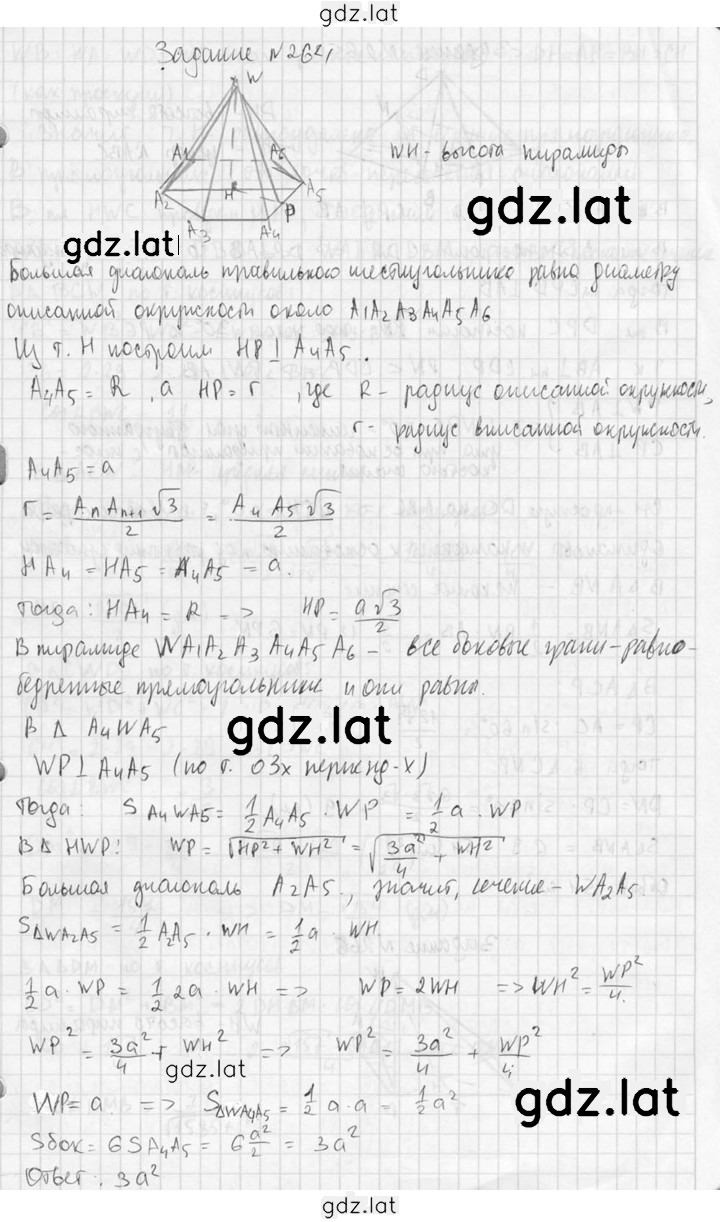 gdz.lat
Задание №264
W
A1
A6
WH - высота пирамиды
A2
H
A5
A3
A4
P
gdz.lat
gdz.lat
Большая диагональ правильного шестиугольника равна диаметру
описанной окружности около A1A2A3A4A5A6
Из т. H построим HP ⊥ A4A5.
A4A5 = R, а HP = r, где R - радиус описанной окружности,
r - радиус вписанной окружности.
A4A5 = a
r = AnAn+1√3/2 = A4A5√3/2
HA4 = HA5 = A4A5 = a.
Тогда: HA4 = R => HP = a√3/2
В пирамиде WA1A2A3A4A5A6 - все боковые грани - равно-
бедренные прямоугольники и они равны.
В Δ A4WA5
gdz.lat
WP ⊥ A4A5 (по т. О 3х перпенд-х)
Тогда: S A4WA5 = 1/2 A4A5 · WP = 1/2 a · WP
В Δ HWP: WP = √HP² + WH² = √3a²/4 + WH²
Большая диагональ A2A5, значит, сечение - WA2A5
SΔWA2A5 = 1/2 A2A5 · WH = 1/2 a · WH.
1/2 a · WP = 1/2 2a · WH => WP = 2WH => WH² = WP²/4.
WP² = 3a²/4 + WH² => WP² = 3a²/4 + WP²/4
gdz.lat
WP = a => SΔWA4A5 = 1/2 a · a = 1/2 a²
gdz.lat
Sбок = 6SA4A5 = 6 a²/2 = 3a²
Ответ: 3a²
gdz.lat